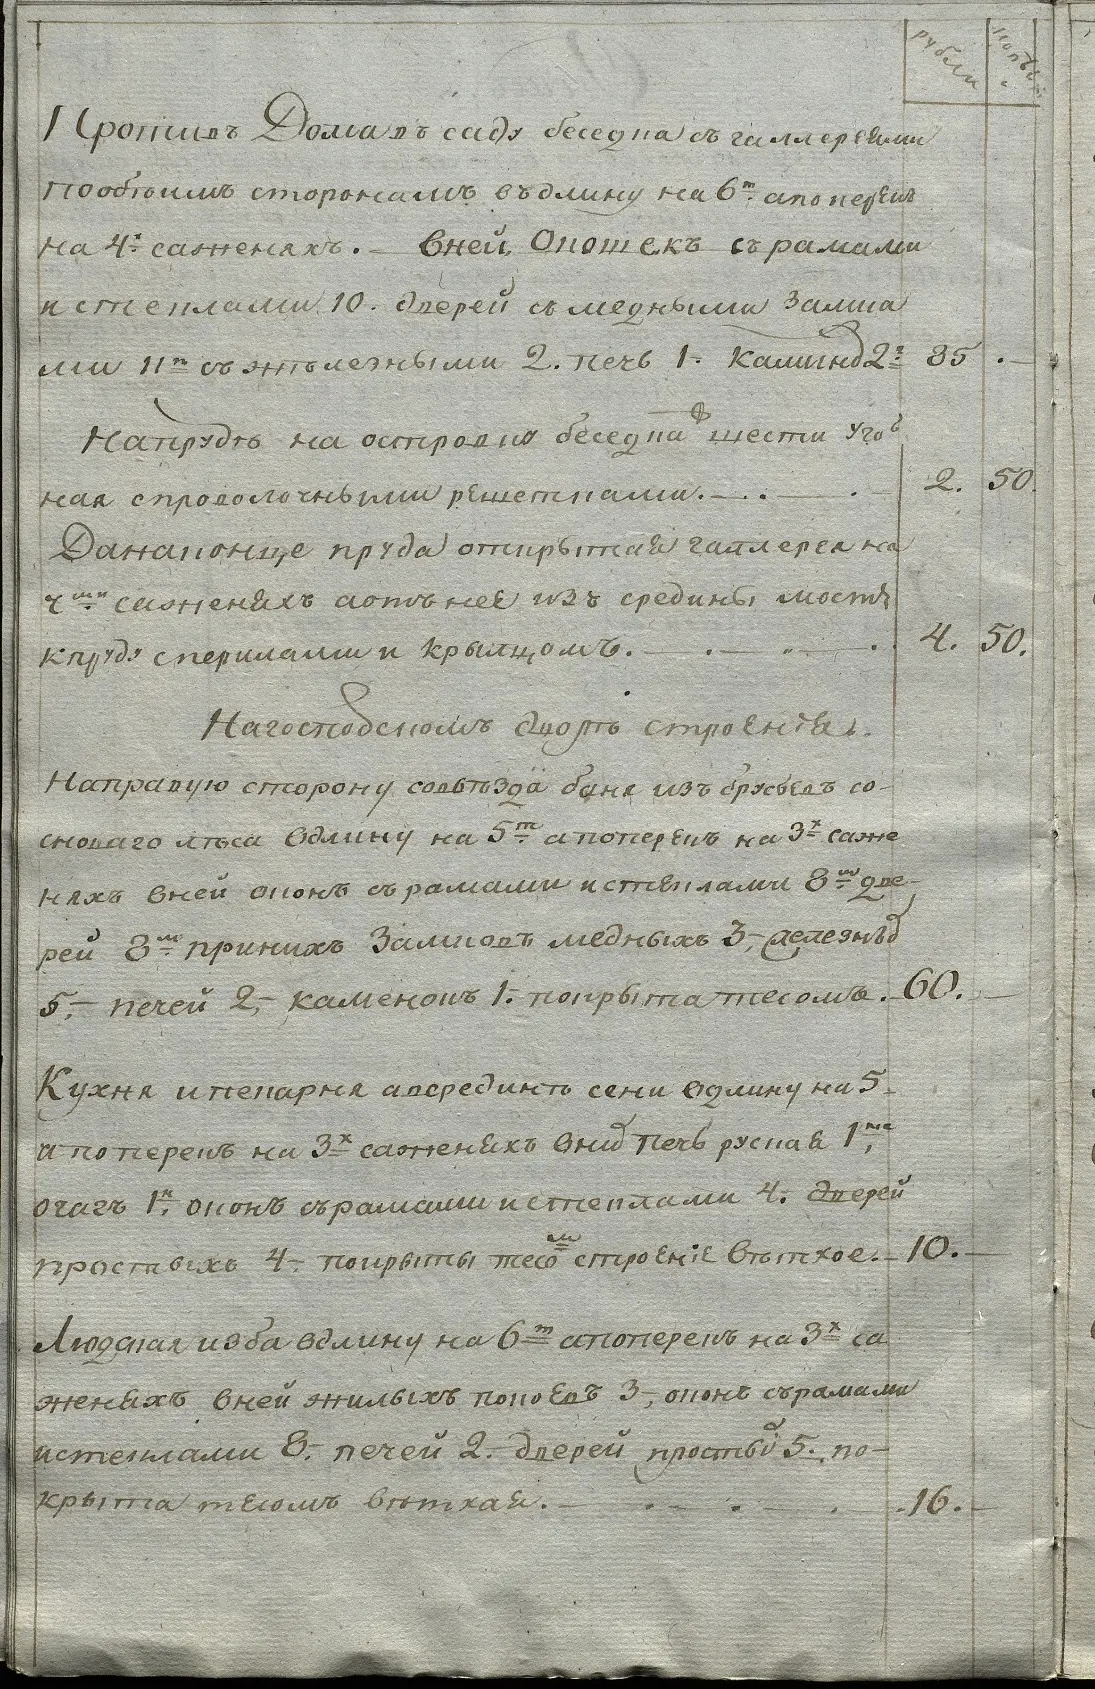 рубли копѣи
Противъ Дома въ саду беседка съ галлереями
пообѣимъ сторонамъ въдлину на 6т апоперекъ
на 4х саженяхъ. — Вней Окошекъ съ рамами
истеклами 10. дверей съ медными Замка
ми 11п съ жѣлезными 2. печь 1. каминовъ 2п 85 . —
Напрудѣ на островку беседка ѳ шести уголь
ная спроволочными решетками. — 2. 50.
Данаконце пруда открытая галлерея на
4ми саженяхъ аотънее изъ средины мостъ
кпруду сперилами и крылцомъ. — 4. 50.
Нагосподскомъ дворѣ строения.
Направую сторону совъѣзда баня изъ брусьевъ со-
сноваго лѣса вдлину на 5т апоперекъ на 3х саже
няхъ вней оконъ съ рамами истеклами 8м две-
рей 8м приникъ Замковъ медныхъ 3, железныхъ
5, — печей 2, — каменокъ 1. покрыта тесомъ. — 60. —
Кухня ипекарня авсрединѣ сени вдлину на 5
апоперекъ на 3х саженяхъ вней печь руская 1на
очагъ 1н оконъ съ рамами истеклами 4. дверей
простыхъ 4. покрыты тесомъ строение вѣтхое. — 10. —
Людская изба вдлину на 6т апоперекъ на 3х са
женяхъ вней жилыхъ покоевъ 3, оконъ съ рамами
истеклами 8. печей 2. дверей простыхъ 5. по-
крыта тесомъ вѣтхая. — 16. —